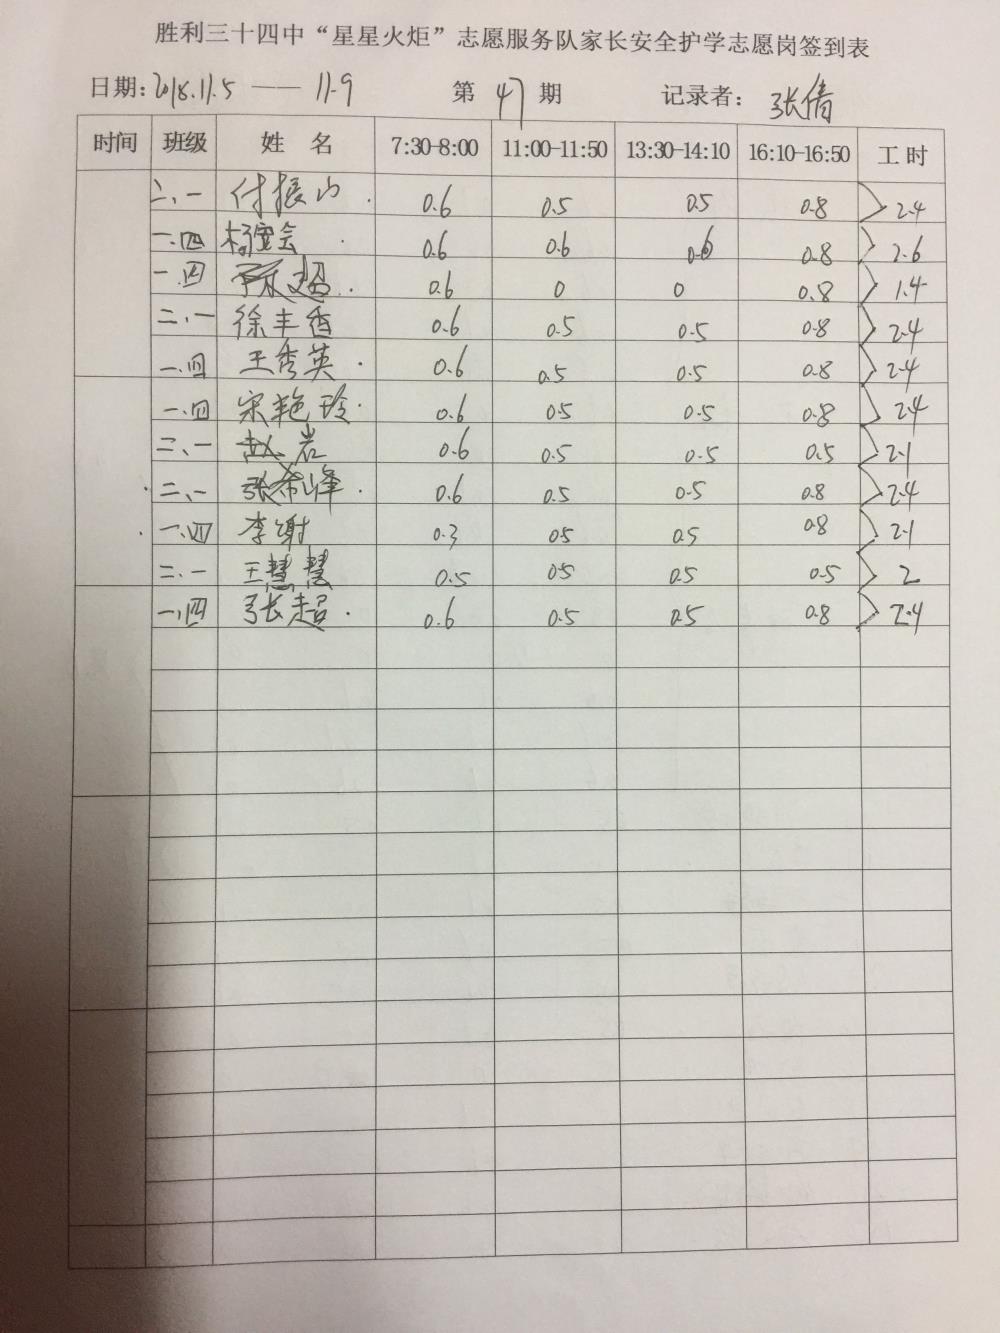 胜利三十四中“星星火炬”志愿服务队家长安全护学志愿岗签到表
日期: 2018.11.5 —— 11.9 第 47 期 记录者: 张倩
时间 班级 姓 名 7:30-8:00 11:00-11:50 13:30-14:10 16:10-16:50 工 时
二、一 付振山 0.6 0.5 0.5 0.8 2.4
一.四 杨宝会 0.6 0.6 0.6 0.8 2.6
一.四 0.6 0 0 0.8 1.4
二、一 徐丰香 0.6 0.5 0.5 0.8 2.4
一.四 王秀英 0.6 0.5 0.5 0.8 2.4
一.四 宋艳玲 0.6 0.5 0.5 0.8 2.4
二、一 赵岩 0.6 0.5 0.5 0.5 2.1
二、一 张希峰 0.6 0.5 0.5 0.8 2.4
一.四 李谢 0.3 0.5 0.5 0.8 2.1
二.一 王慧慧 0.5 0.5 0.5 0.5 2
一.四 张超 0.6 0.5 0.5 0.8 2.4